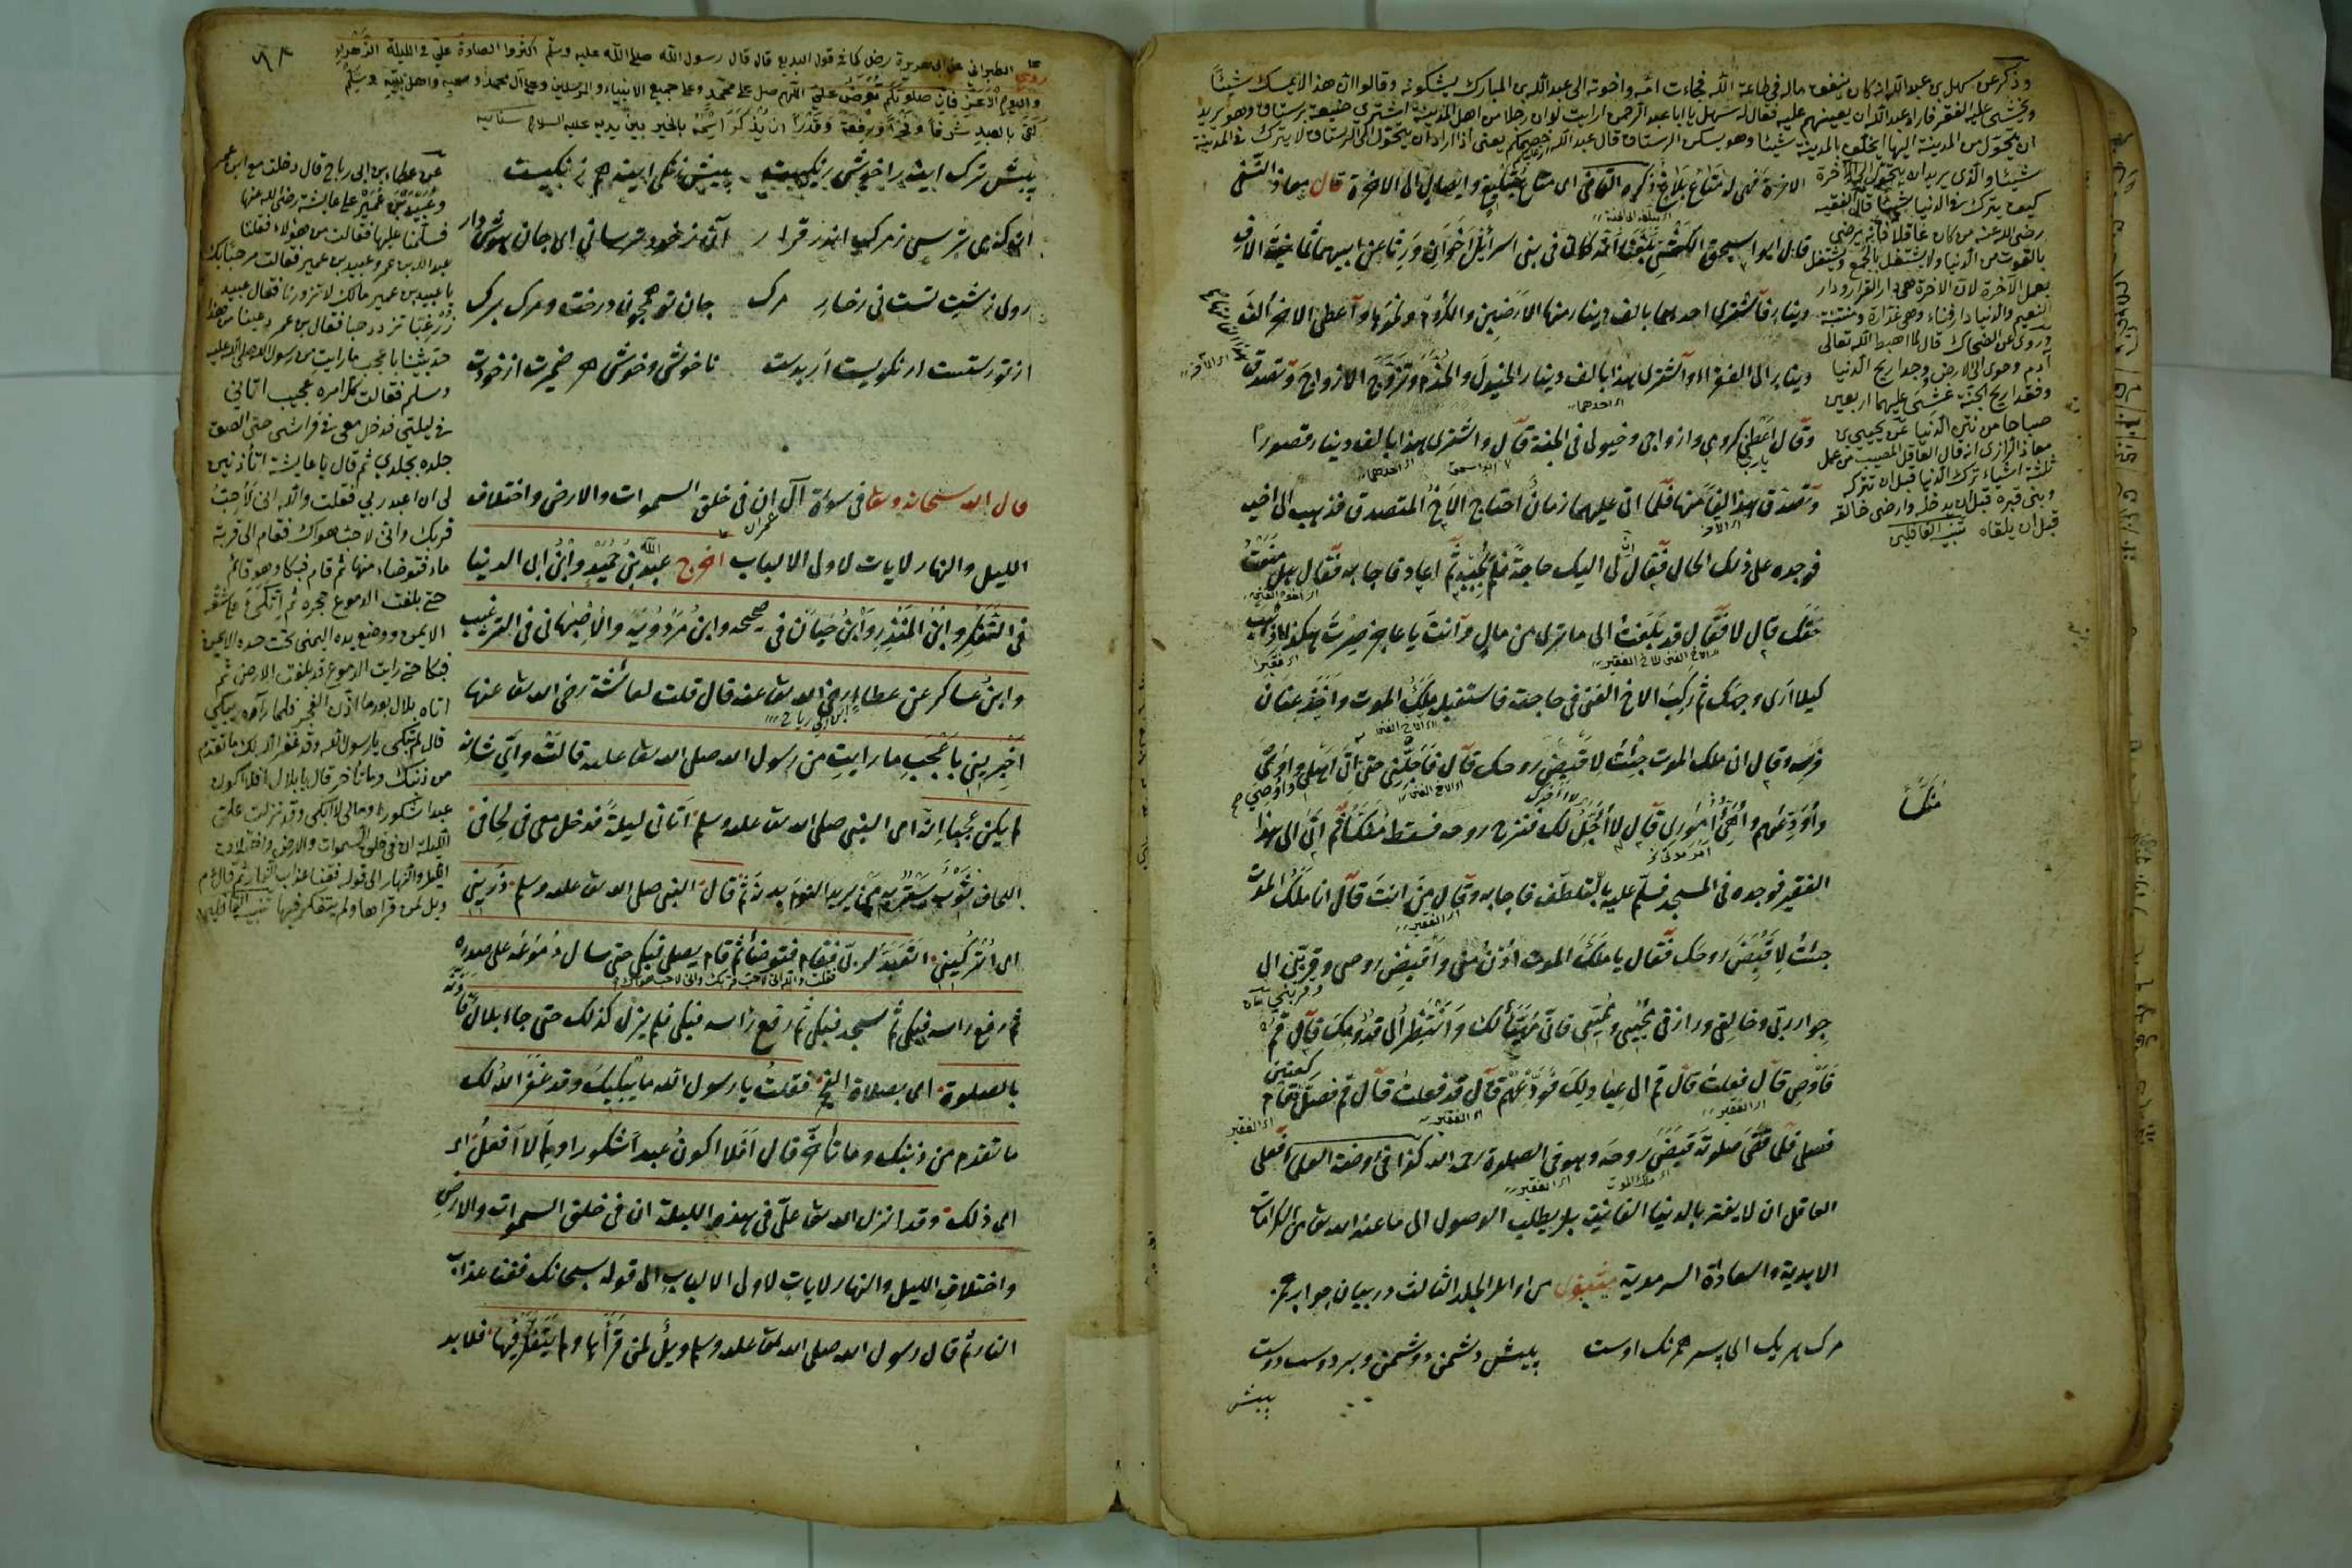 وذكر عن سهل بن عبد الله انه كان ينفق ماله في طاعة الله فجاءت امه واخوته الى عبد الله بن المبارك يشكونه وقالوا ان هذا لا يمسك شيئا
ويخشى عليه الفقر فاراد عبد الله ان يعينهم عليه فقال له سهل يا ابا عبد الرحمن ارايت لو ان رجلا من اهل المدينة اشترى ضيعة برستاق وهو يريد
ان يتحول من المدينة اليها ايخلف بالمدينة شيئا وهو يسكن الرستاق قال عبد الله خصمكم يعنى اذا اراد ان يتحول الى الرستاق لا يترك في المدينة
شيئا والذى يريد ان يتحول الى الآخرة
كيف يترك في الدنيا شيئا قال الفقيه
رضى الله عنه من كان عاقلا فانه يرضى
بالقوت من الدنيا ولا يشتغل بالجمع ويشتغل
بعمل الآخرة لان الآخرة هى دار القرار ودار
النعيم والدنيا دار فناء وهى غدارة ومفتنة
وروى عن الضحاك قال لما اهبط الله تعالى
آدم وحوى الى الارض وجدا ريح الدنيا
وفقدا ريح الجنة غشى عليهما اربعين
صباحا من نتن الدنيا عن يحيى بن
معاذ الرازى انه قال العاقل المصيب من عمل
ثلاثة اشياء ترك الدنيا قبل ان تتركه
وبنى قبره قبل ان يدخله وارضى خالقه
قبل ان يلقاه تنبيه الغافلين
الآخرة فهى له متاع بلاغ ذكره القاضى اى متاع يبلغ وايصال الى الآخرة قال معاذ النسفى
قال ابو اسحق الكشى بلغنا انه كان في بنى اسرائيل اخوان ورثا عن ابيهما ثمانية آلاف
دينار فآشترى احدهما بالف دينار منها الارضين والكروم ونحوها وآعطى الاخر الف
دينار الى الفقراء وآشترى هذا بالف دينار الخيول والخدم وتزوج الازواج وتصدق
وقال اعطنى كرومى وازواجى وخيولى في الجنة قال واشترى هذا بالف دينار قصورا
وتصدق هذا الفا منها فلما اتى عليهما زمان احتاج الاخ المتصدق فذهب الى اخيه
فوجده على ذلك الحال فقال ان لى اليك حاجة فلم يجبه ثم اعاد فاجابه فقال هل منعت
حقك قال لا فقال قد بلغت الى ما ترى من مال وآنت يا عاجز صرت هكذا فاذهب
كيلا ارى وجهك ثم ركب الاخ الغنى في حاجته فاستقبله ملك الموت واخذ عنان
فرسه وقال انى ملك الموت جئت لاقبض روحك قال فآجلنى حتى اتى اهلى واوصى
واودعهم واهيئ امورى قال لا اؤجل لك فنزع روحه فسقط منكسا ثم اتى الى هذا
الفقير فوجده في المسجد فسلم عليه بالتلطف فاجابه وقال من انت قال انا ملك الموت
جئت لاقبض روحك فقال يا ملك الموت ادن منى واقبض روحى وقربنى الى
جوار ربى وخالقى ورازقى ومحيى ومميتى فانى مهيأ لك وانتظر الى قدومك قال قم
فآوص قال فعلت قال قم الى عيادلك فودعهم قال قد فعلت قال قم فصل فقام
فصلى فلما قضى صلوته قبض روحه وهو في الصلوة رحمه الله كذا في روضة العلماء فعلى
العاقل ان لا يغتر بالدنيا الفانية بل يطلب الوصول الى ما عند الله تعالى من الكرامات
الابدية والسعادات السرمدية مثنوى من اوائل المجلد الثالث در بيان جواب حمزه
مرك هريك اى پسر همرنك اوست پيش دشمن دشمن وبر دوست دوست
پيش
منكسا
روى الطبرانى عن ابى هريرة رضى كما في قول البديع قال قال رسول الله صلى الله عليه وسلم اكثروا الصلوة على في الليلة الزهراء
واليوم الاغر فان صلوتكم تعرض على اللهم صل على محمد وعلى جميع الانبياء والمرسلين وعلى آل محمد وصحبه واهل بيته وسلم
كفى بالعبد شرفا وفخرا ورفعة وقدرا ان يذكر اسمه بالخير بين يديه عليه السلام
پيش ترك آينه را خوش رنكيست پيش زنكى آينه هم زنكيست
انكه مى ترسى ز مرك اندر فرار آن ز خود ترسانى اى جان هوش دار
روى زشت تست نى رخسار مرك جان تو همچون درخت ومرك برك
از تو رستست ار نكويست ار بدست ناخوش وخوش هم ضميرت از خودست
قال الله سبحانه وتعالى في سورة آل عمران ان في خلق السموات والارض واختلاف
الليل والنهار لايات لاولى الالباب اخرج عبد بن حميد وابن ابى الدنيا
في التفكر وابن المنذر وابن حبان في صحيحه وابن مردويه والاصبهانى في الترغيب
وابن عساكر عن عطاء رضى الله تعالى عنه قال قلت لعائشة رضى الله تعالى عنها
اخبرينى باعجب ما رايت من رسول الله صلى الله تعالى عليه قالت وآى شانه
لم يكن عجبا انه اى النبى صلى الله تعالى عليه وسلم اتانى ليلة فدخل معى في لحافى
اللحاف ثوب يستر به من يريد النوم بدنه ثم قال النبى صلى الله تعالى عليه وسلم ذرينى
اى اتركينى اتعبد لربى فقام فتوضأ ثم قام يصلى فبكى حتى سال دموعه على صدره
ثم رفع راسه فبكى ثم سجد فبكى ثم رفع راسه فبكى فلم يزل كذلك حتى جاء بلال فآذنه
بالصلوة اى بصلاة الفجر فقلت يا رسول الله ما يبكيك وقد غفر الله لك
ما تقدم من ذنبك وما تأخر قال افلا اكون عبدا شكورا ولم لا افعل اى
اى ذلك وقد انزل الله تعالى على في هذه الليلة ان في خلق السموات والارض
واختلاف الليل والنهار لايات لاولى الالباب الى قوله سبحانك فقنا عذاب
النار ثم قال رسول الله صلى الله تعالى عليه وسلم ويل لمن قرأها ولم يتفكر فيها فلا بد
عن عطاء بن ابى رباح قال دخلت مع ابن عمر
وعبيد بن عمير على عايشة رضى الله عنها
فسلمنا عليها فقالت من هؤلاء فقلنا
عبد الله بن عمر وعبيد بن عمير فقالت مرحبا بك
يا عبيد بن عمير مالك لا تزورنا فقال عبيد
زر غبا تزدد حبا فقال بن عمر دعينا من هذا
حدثينا باعجب ما رايت من رسول الله صلى الله عليه
وسلم فقالت كل امره عجيب اتانى
في ليلتى فدخل معى في فراشى حتى الصق
جلده بجلدى ثم قال يا عايشة اتأذنين
لى ان اعبد ربى فقلت والله انى لاحب
قربك وانى لاحب هواك فقام الى قربة
ماء فتوضا منها ثم قام فبكا وهو قائم
حتى بلغت الدموع حجره ثم اتكئ على شقه
الايمن ووضع يده اليمنى تحت خده الايمن
فبكا حتى رايت الدموع قد بلغت الارض ثم
اتاه بلال بعد ما اذن الفجر فلما رآه يبكى
قال لم تبكى يا رسول الله وقد غفر الله لك ما تقدم
من ذنبك وما تأخر قال يا بلال افلا اكون
عبدا شكورا ومالى لا ابكى وقد نزلت على
الليلة ان في خلق السموات والارض واختلاف
الليل والنهار الى قوله فقنا عذاب النار ثم قال
ويل لمن قراها ولم يتفكر فيها تنبيه الغافلين